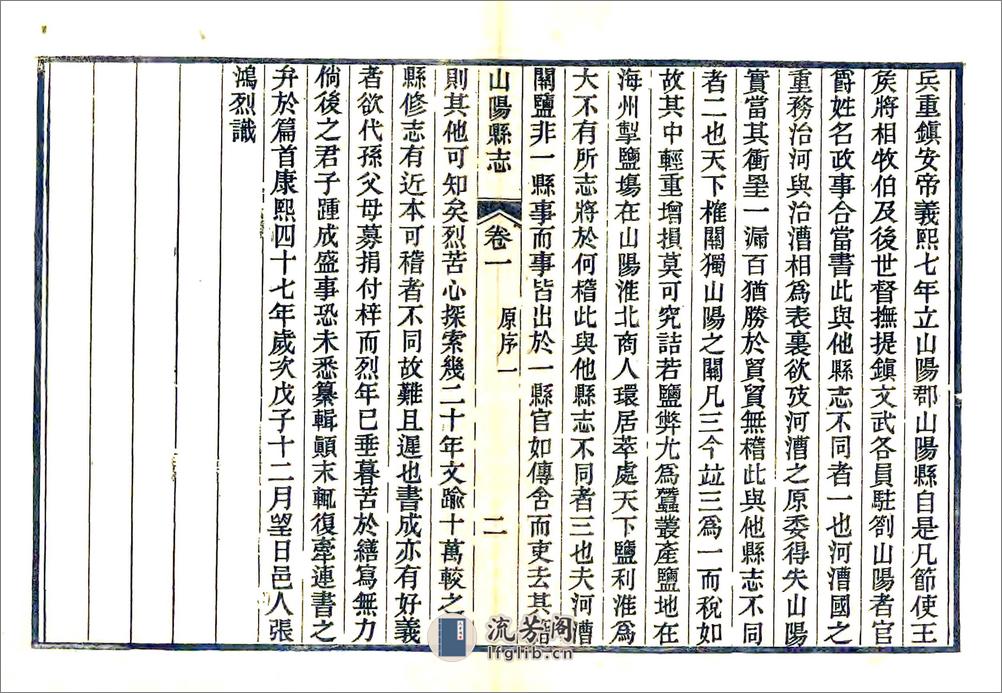 兵重鎭安帝義熙七年立山陽郡山陽縣自是凡節使王
矦將相牧伯及後世督撫提鎭文武各員駐劄山陽者官
爵姓名政事合當書此與他縣志不同者一也河漕國之
重務治河與治漕相爲表裏欲攷河漕之原委得失山陽
實當其衝壘一漏百猶勝於貿貿無稽此與他縣志不同
者二也天下榷關獨山陽之關凡三今竝三爲一而稅如
故其中輕重增損莫可究詰若鹽弊尤爲蠶叢產鹽地在
海州掣鹽塲在山陽淮北商人環居萃處天下鹽利淮爲
大不有所志將於何稽此與他縣志不同者三也夫河漕
關鹽非一縣事而事皆出於一縣官如傳舍而吏去其
山陽縣志 卷一 原序一 二
則其他可知矣烈苦心探索幾二十年文踰十萬較之
縣修志有近本可稽者不同故難且遲也書成亦有好義
者欲代孫父母募捐付梓而烈年已垂暮苦於繕寫無力
倘後之君子踵成盛事恐未悉纂輯顚末輒復牽連書之
弁於篇首康熙四十七年歲次戊子十二月望日邑人張
鴻烈識
流芳閣
lfglib.cn